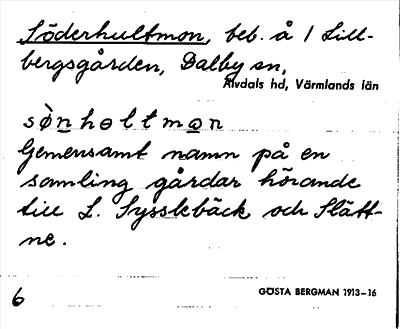 Söderhultmon, beb. å 1 Lill-
bergsgården, Dalby sn,
Älvdals hd, Värmlands län
sø̀n̲hɵltmo̲n
Gemensamt namn på en
samling gårdar hörande
till L. Sysslebäck och Slätt-
ne.
6
GÖSTA BERGMAN 1913–16